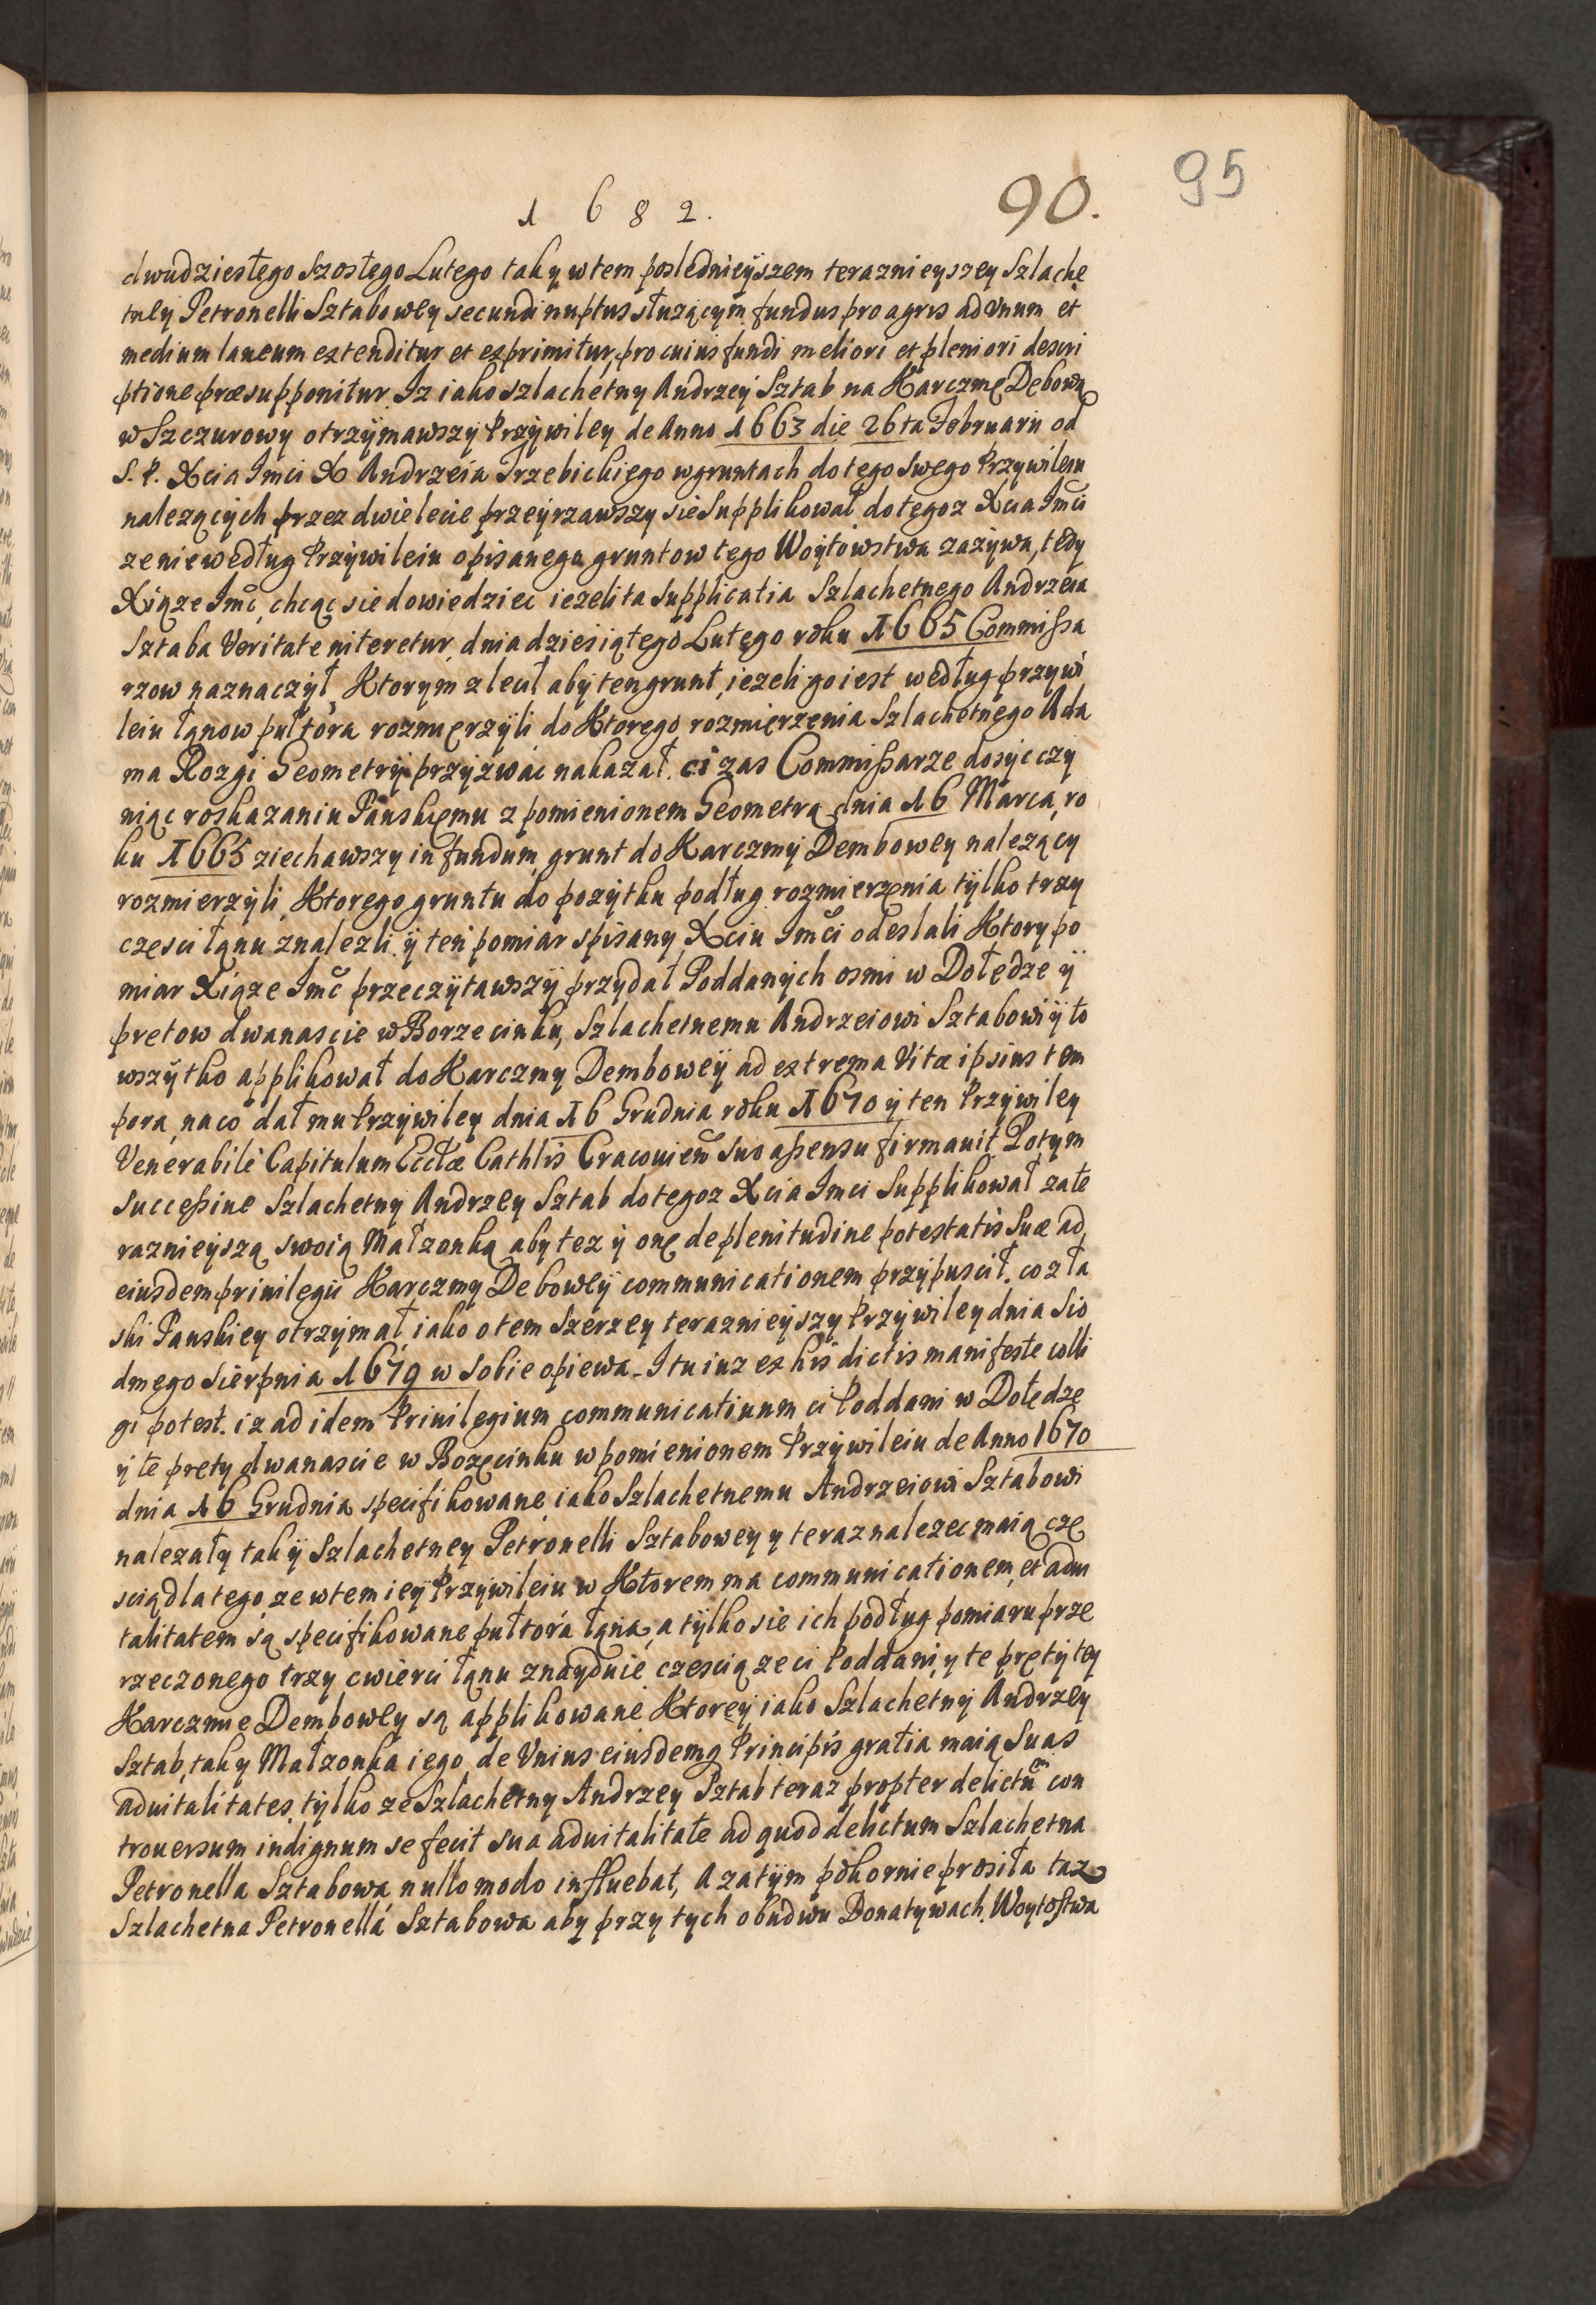 95
90.
1 6 8 2.
dwudziestego Szostego Lutego tak y w tem poslednieyszem teraznieyszey Szlache
tney Petronelli Sztabowey secundi nuptus słuzącym fundus pro agris ad Vnum et
medium laneum extenditur et exprimitur, pro cuius fundi meliori et pleniori descri
ptione præsupponitur. Iz iako szlachetny Andrzey Sztab na Karczmę Dębową
w Szczurowy otrzymawszy Przywiley de Anno 1663 die 26ta Februarii od
S. P. Xcia Imci X Andrzeia Trzebickiego w gruntach do tego swego Przywileiu
nalezących przez dwie lecie przeyrzawszy sie Supplikował do tegoz Xcia Imci
ze nie według Przywileiu opisanego gruntow tego Woytowstwa zazywa, tedy
Xiąze Imć, chcąc sie dowiedziec iezeli ta Supplicatia Szlachetnego Andrzeia
Sztaba Veritate niteretur, dnia dziesiątego Lutego roku 1665 Commissa
rzow naznaczył, Ktorym zlecił aby ten grunt, iezeli go iest według przywi
leiu łanow pułtora rozmierzyli do Ktorego rozmierzenia Szlachetnego Ada
ma Rozgi Geometry przyzwac nakazał. ci zas Commissarze dosyc czy
niąc roskazaniu Panskiemu z pomienionem Geometrą dnia 16 Marca, ro
ku 1665 ziechawszy in fundum, grunt do Karczmy Dembowey nalezący
rozmierzyli, Ktorego gruntu do pozytku podług rozmierzenia tylko trzy
częsci łanu znalezli. y ten pomiar spisany Xciu Imci odeslali Ktory po
miar Xiąze Imć przeczytawszy przydał Poddanych osmi w Dołędze y
prętow dwanascie w Borzecinku, Szlachetnemu Andrzeiowi Sztabowi y to
wszytko applikował do Karczmy Dembowey ad extrema Vitæ ipsius tem
pora, na co dał mu Przywiley dnia 16 Grudnia roku 1670 y ten Przywiley
Venerabile Capitulum Ecclæ Cathlis Cracouien suo assensu firmauit. Potym
successiue Szlachetny Andrzey Sztab do tegoz Xcia Imci Supplikował za te
raznieyszą swoią Małzonką aby tez y onę de plenitudine potestatis Suæ ad
eiusdem priuilegii Karczmy Debowey communicationem przypuscił. co z ła
ski Panskiey otrzymał, iako o tem Szerzey teraznieyszy Przywiley dnia Sio
dmego Sierpnia 1679 w sobie opiewa. I tu iuz ex his dictis manifeste colli
gi potest. iz ad idem Priuilegium communicatiuum ci Poddani w Dołędze
y te pręty dwanascie w Bozęcinku w pomienionem Przywileiu de Anno 1670
dnia 16 Grudnia specifikowane, iako Szlachetnemu Andrzeiowi Sztabowi
nalezały tak y Szlachetney Petronelli Sztabowey y teraz nalezec maią czę
scią dla tego, ze w tem iey Przywileiu w Ktorem ma communicationem, et adui
talitatem są specifikowane pułtora łana, a tylko sie ich podług pomiaru prze
rzeczonego trzy cwierci łanu znayduie, czescią ze ci Poddani y te pręty tey
Karczmie Dembowey są applikowane Ktorey iako Szlachetny Andrzey
Sztab, tak y Małzonka iego, de Vnius eiusdemq Principis gratia maią Suas
aduitalitates, tylko ze Szlachetny Andrzey Sztab teraz propter delictū con
trouersum indignum se fecit sua aduitalitate ad quod delictum Szlachetna
Petronella Sztabowa nullo modo influebat, A zatym pokornie prosiła taz
Szlachetna Petronella Sztabowa aby przy tych obudwu Donatywach, Woytostwa